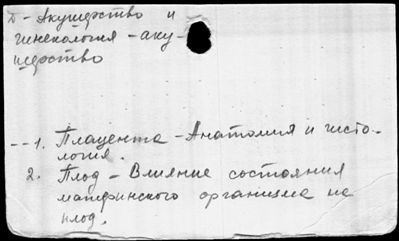 Д - Акушерство и
гинекология - аку-
шерство
-- 1. Плацента - Анатомия и гисто-
логия.
2. Плод - Влияние состояния
материнского организма на
плод.